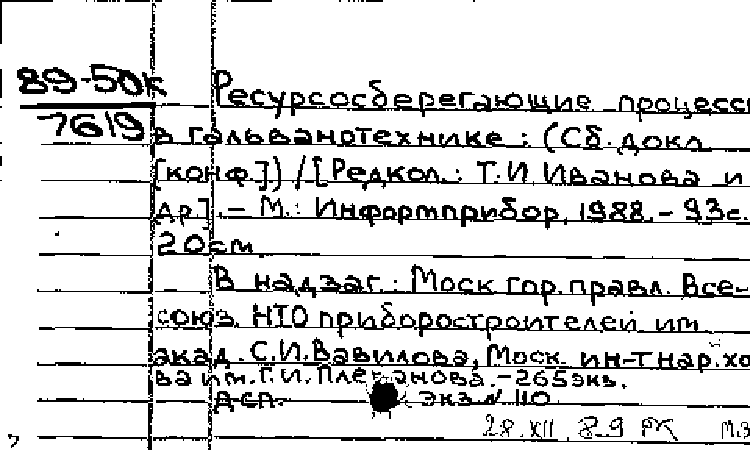 89-50к
7619
Ресурсосберегающие процесс
в гальванотехнике : (Сб. докл
[конф.]) / [Редкол.: Т.И. Иванова и
др.]. – М.: Информприбор, 1988. – 93с.
20см
В надзаг.: Моск гор. правл. Все-
союз. НТО приборостроителей им
акад. С.И. Вавилова, Моск. ин-т нар. хо
ва им. Г.И. Плеханова. – 265экз.
ДСП. Экз № 110
28.XII.89